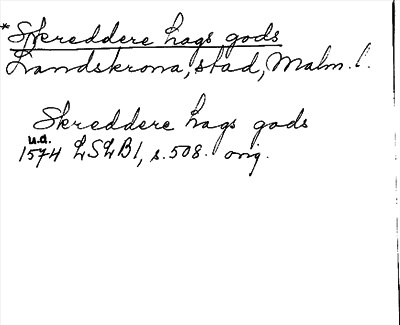 *Skreddere Lags gods
Landskrona, stad, Malm. l.
Skreddere Lags gods
u.d.
1574 LSLB1, s. 508. orig.